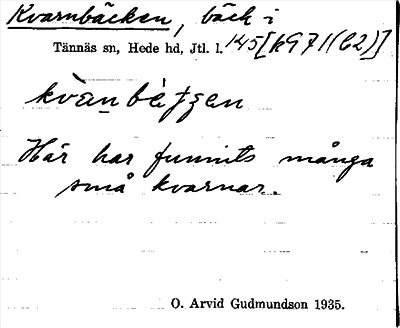 Kvarnbäcken, bäck i
Tännäs sn, Hede hd, Jtl. l. 145[k971(62)]
kvàn bètzen
Här har funnits många
små kvarnar.
O. Arvid Gudmundson 1935.